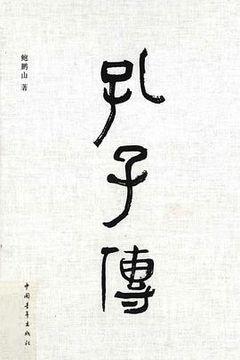 鲍鹏山 著
孔子傳
中国青年出版社